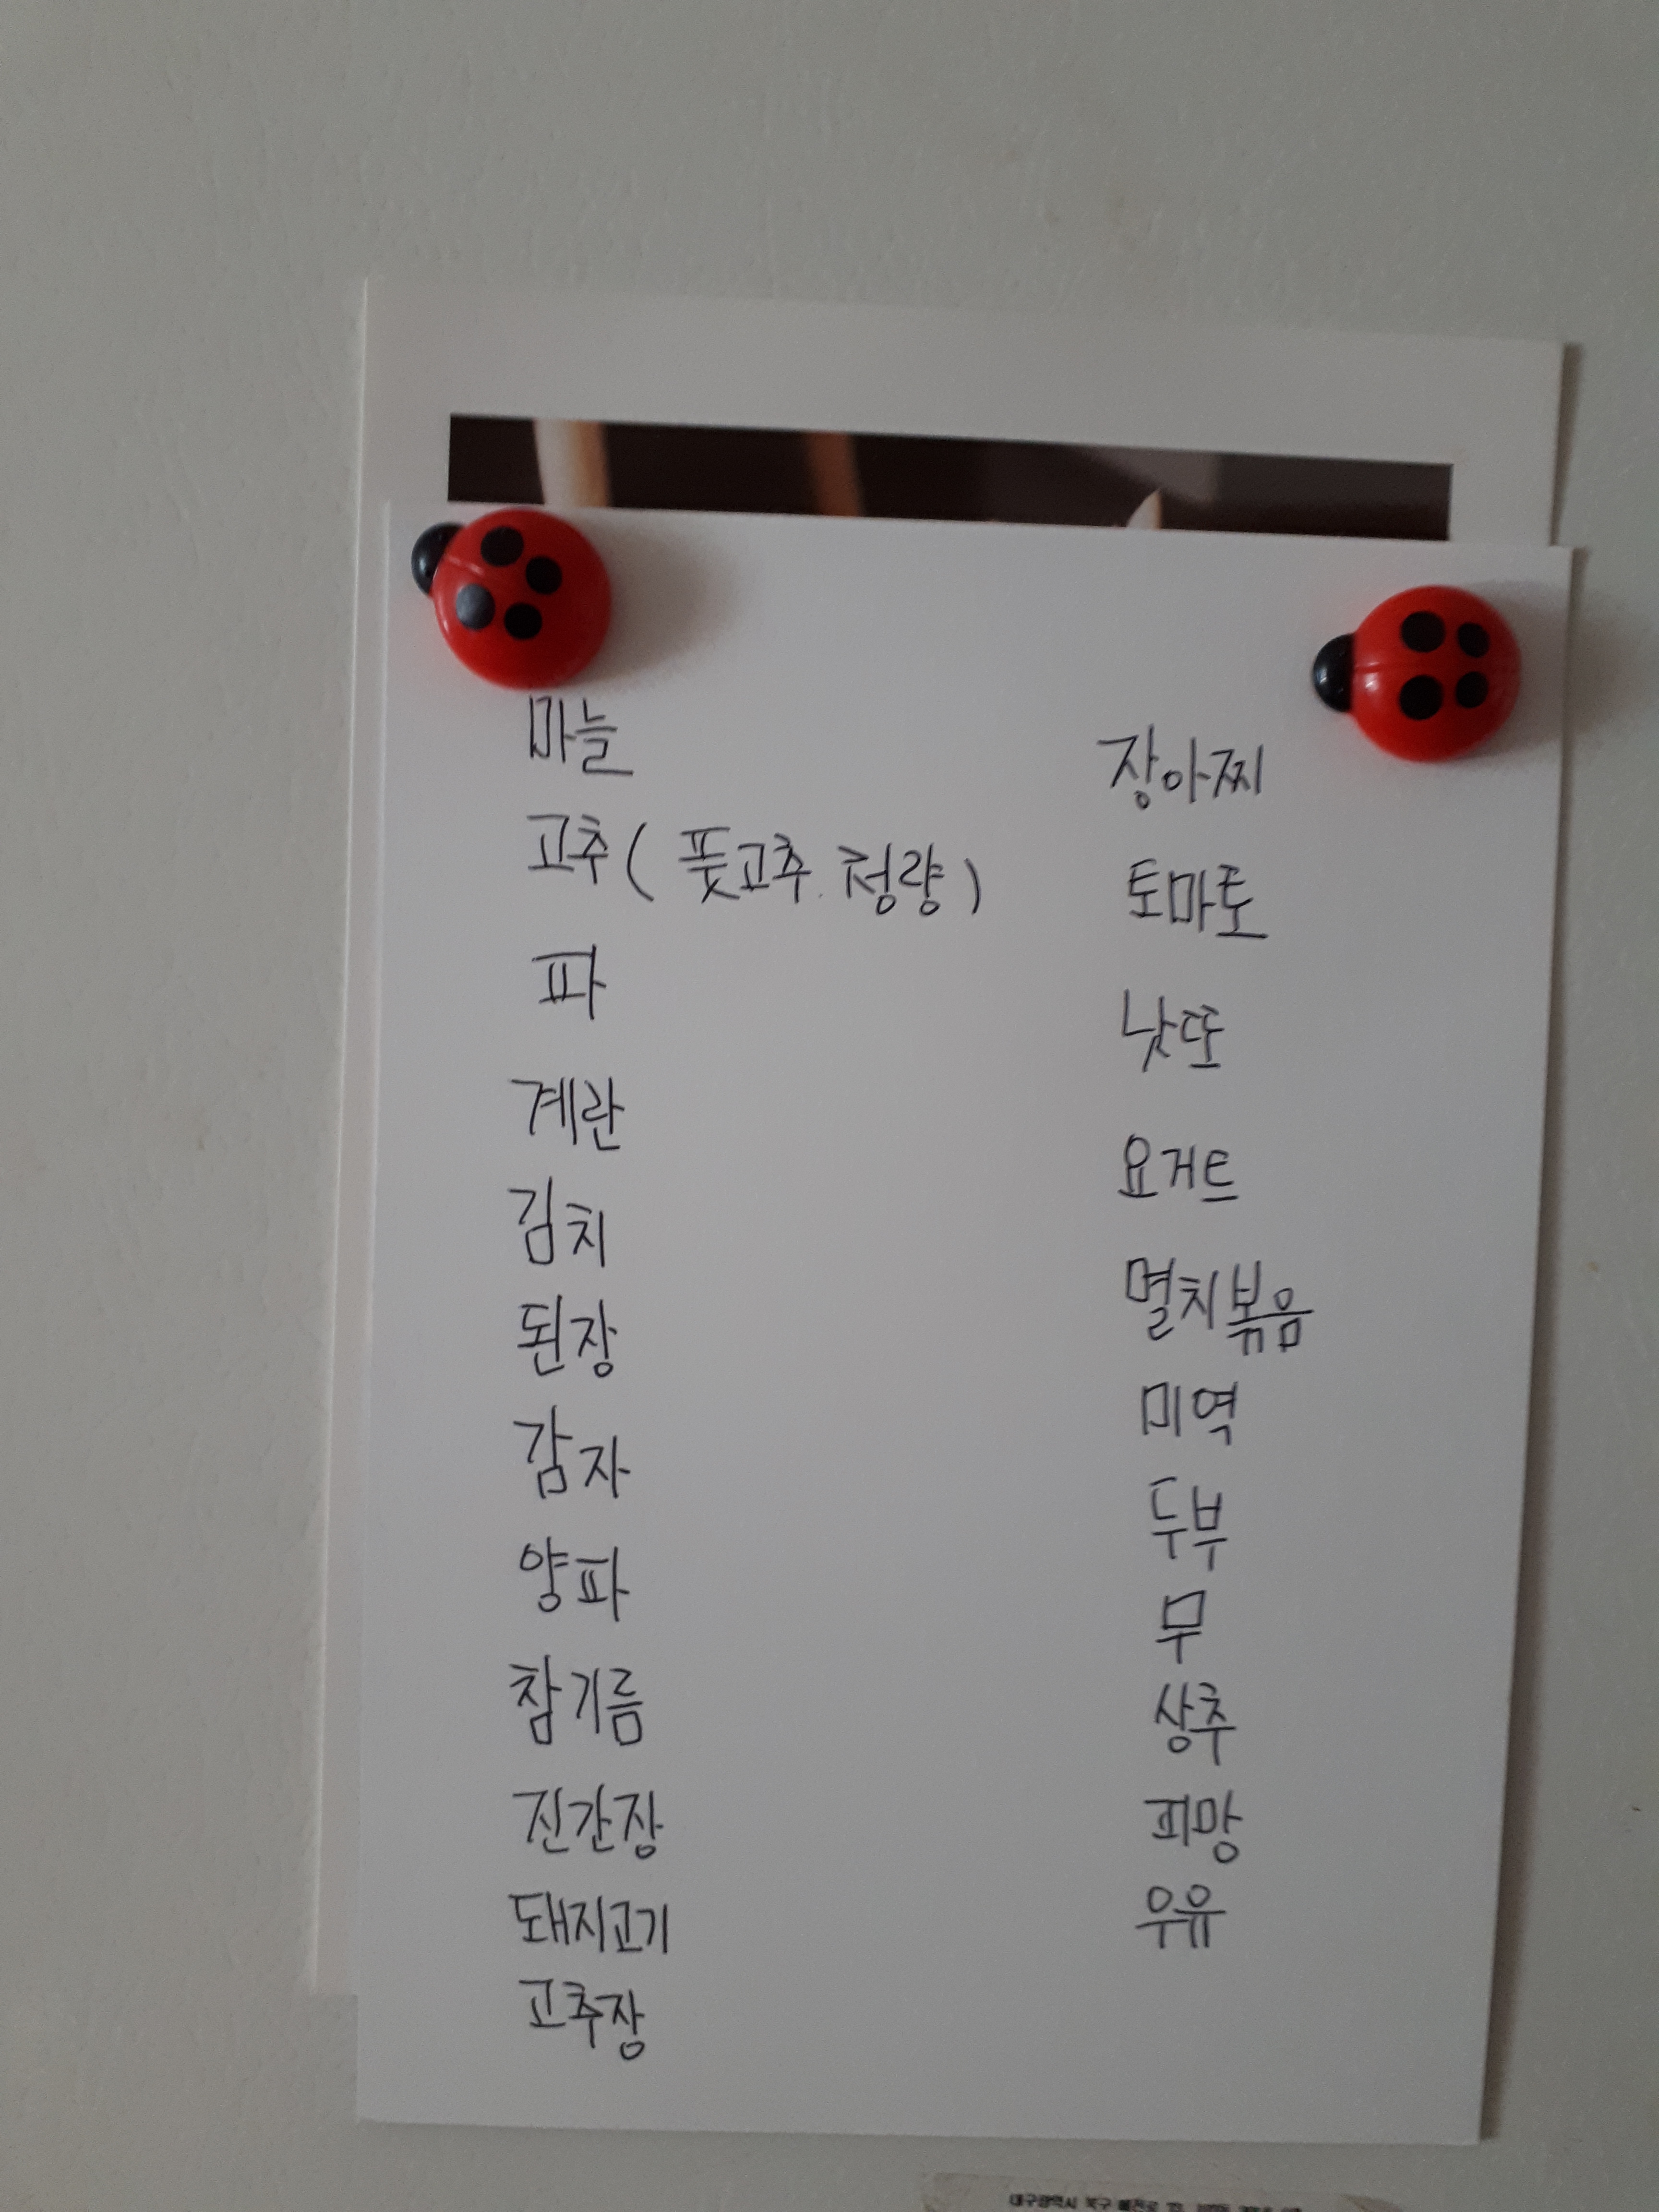 마늘
고추 ( 풋고추. 청량 )
파
계란
김치
된장
감자
양파
참기름
진간장
돼지고기
고추장
장아찌
토마토
낫또
요거트
멸치볶음
미역
두부
무
상추
피망
우유
대구광역시 북구